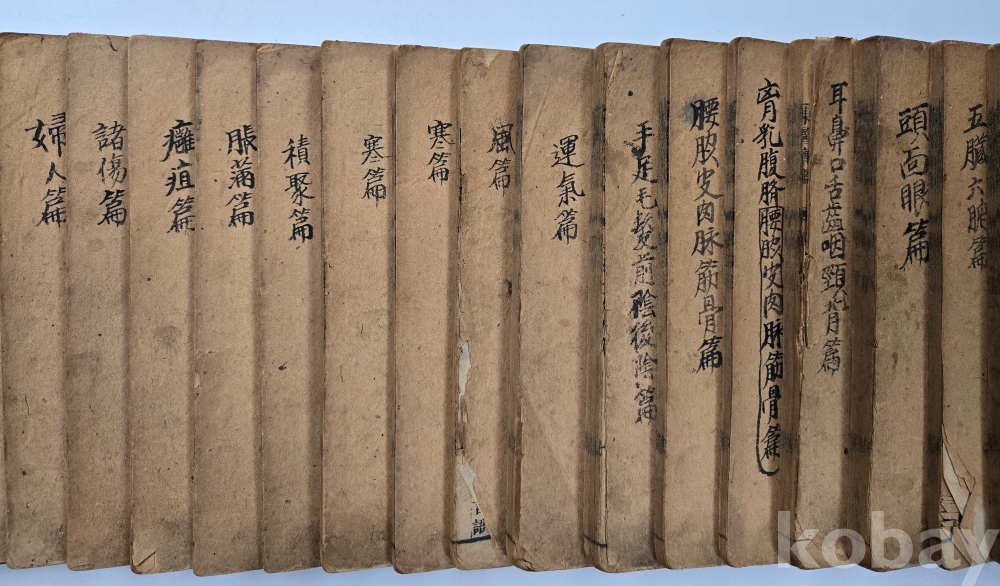 五臟六腑篇
頭面眼篇
耳鼻口舌齒咽頸背篇
胷乳腹臍腰皮肉脉筋骨篇
腰皮肉脉筋骨篇
手足毛髮前陰後陰篇
運氣篇
風篇
寒篇
寒篇
積聚篇
脹滿篇
癰疽篇
諸傷篇
婦人篇
kobay